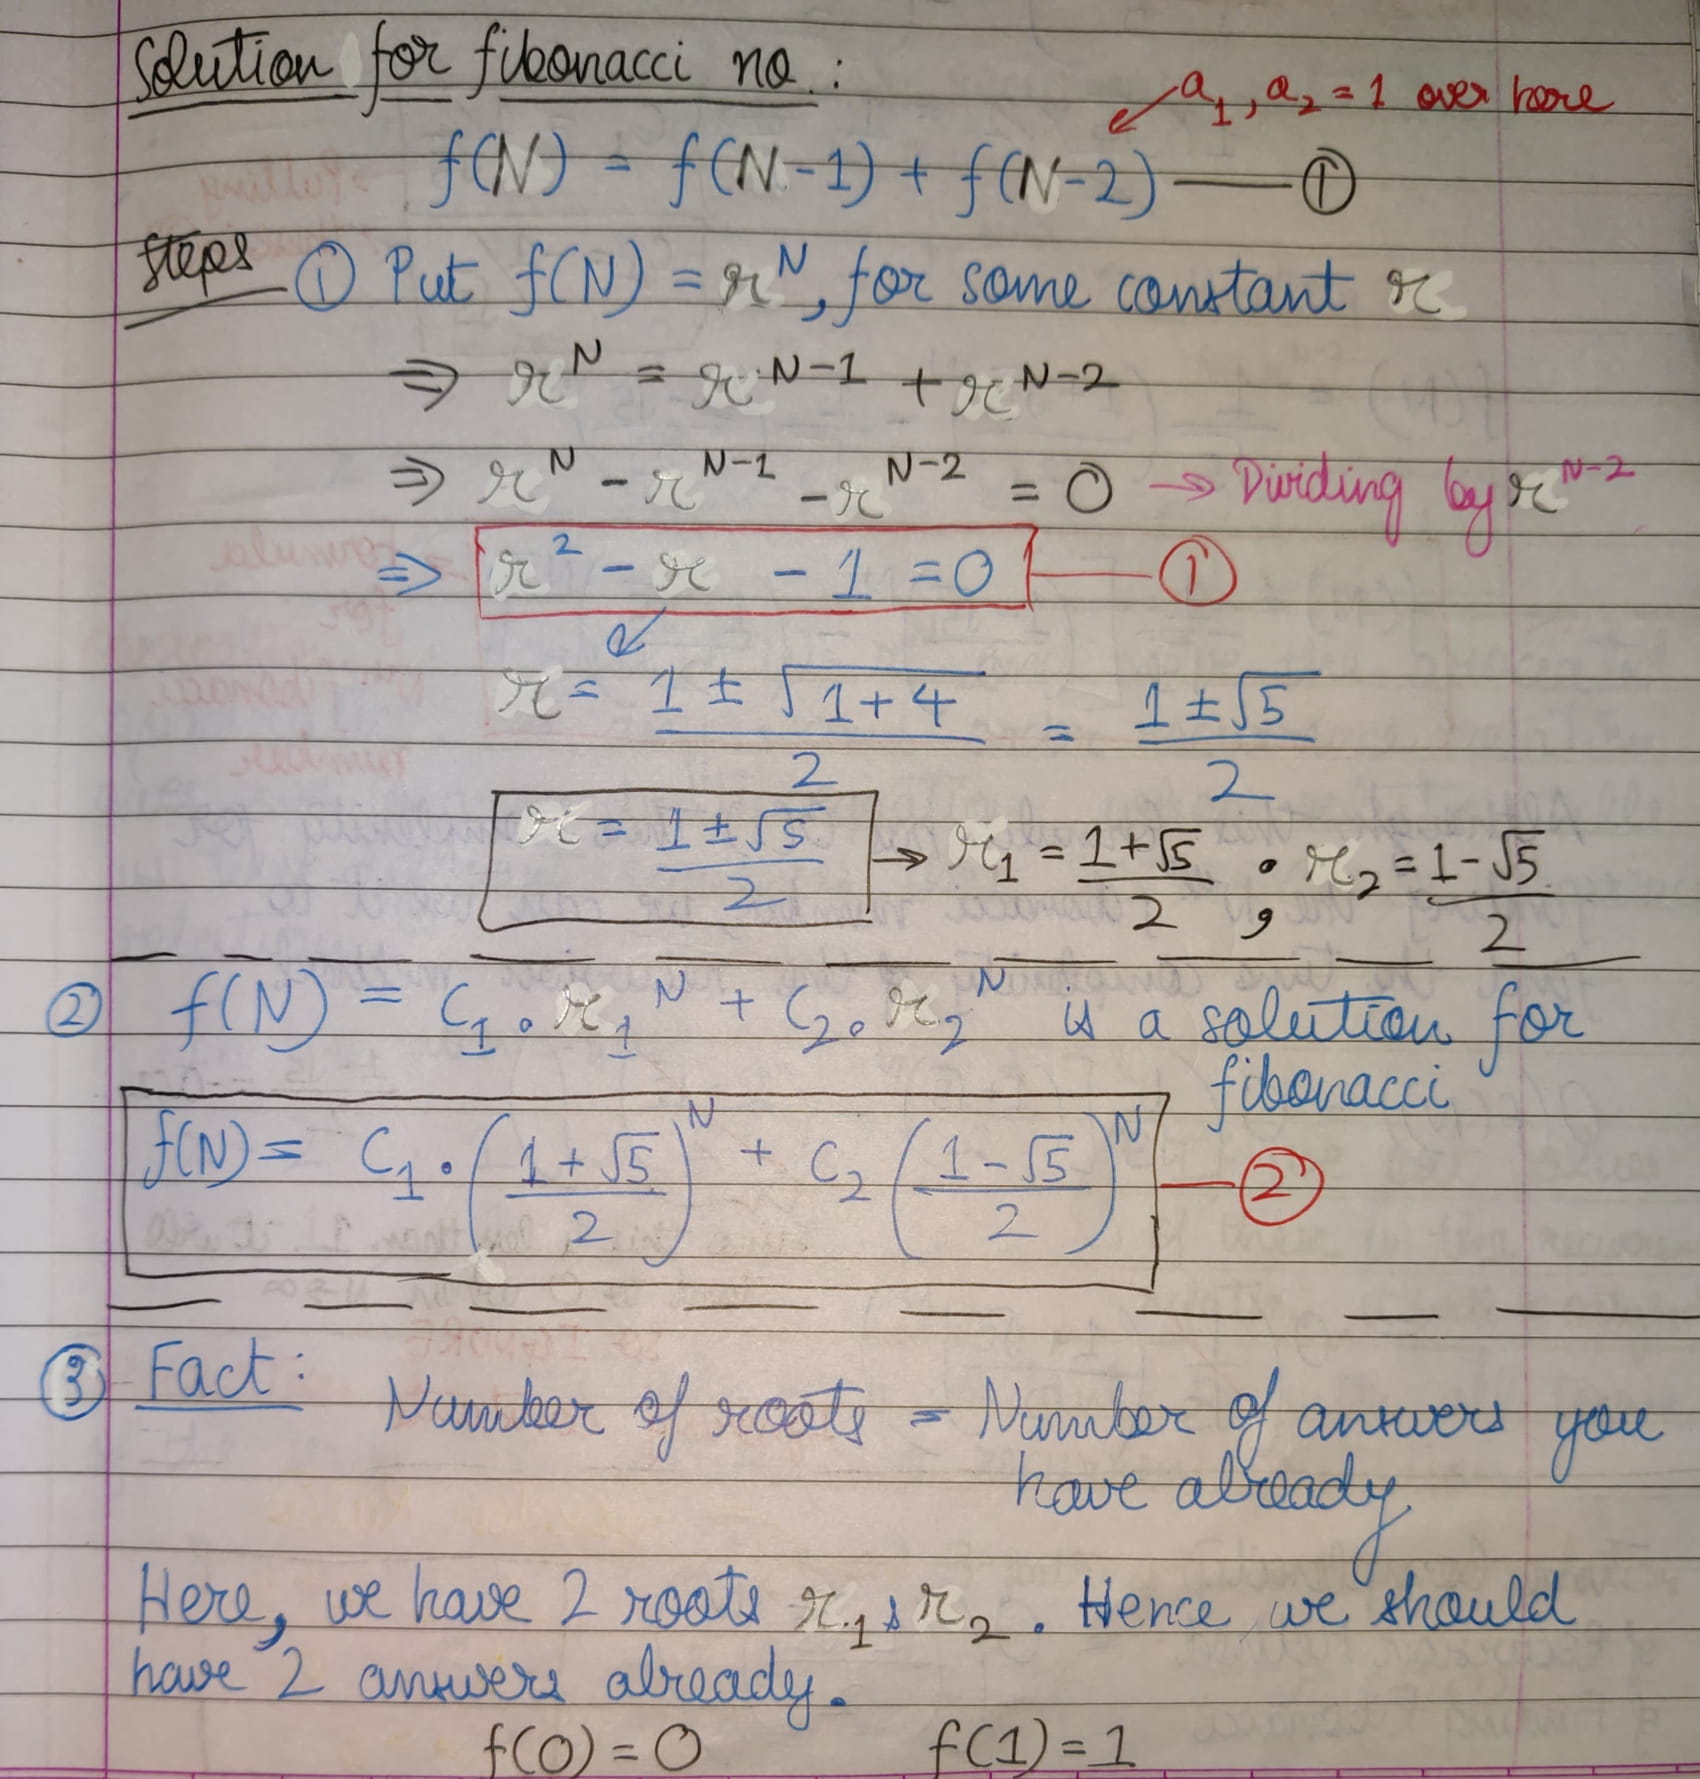 Solution for fibonacci no.:
a₁, a₂ = 1 over here
f(N) = f(N-1) + f(N-2) — ①
Steps ① Put f(N) = r^N, for some constant r
⇒ r^N = r^(N-1) + r^(N-2)
⇒ r^N - r^(N-1) - r^(N-2) = 0 → Dividing by r^(N-2)
⇒ r² - r - 1 = 0 — ①
r = (1 ± √(1+4))/2 = (1 ± √5)/2
r = (1 ± √5)/2 → r₁ = (1+√5)/2 , r₂ = (1-√5)/2
② f(N) = C₁ . r₁^N + C₂ . r₂^N is a solution for
fibonacci
f(N) = C₁ . ((1+√5)/2)^N + C₂ ((1-√5)/2)^N — ②
③ Fact: Number of roots = Number of answers you
have already.
Here, we have 2 roots r₁, r₂. Hence we should
have 2 answers already.
f(0) = 0 f(1) = 1